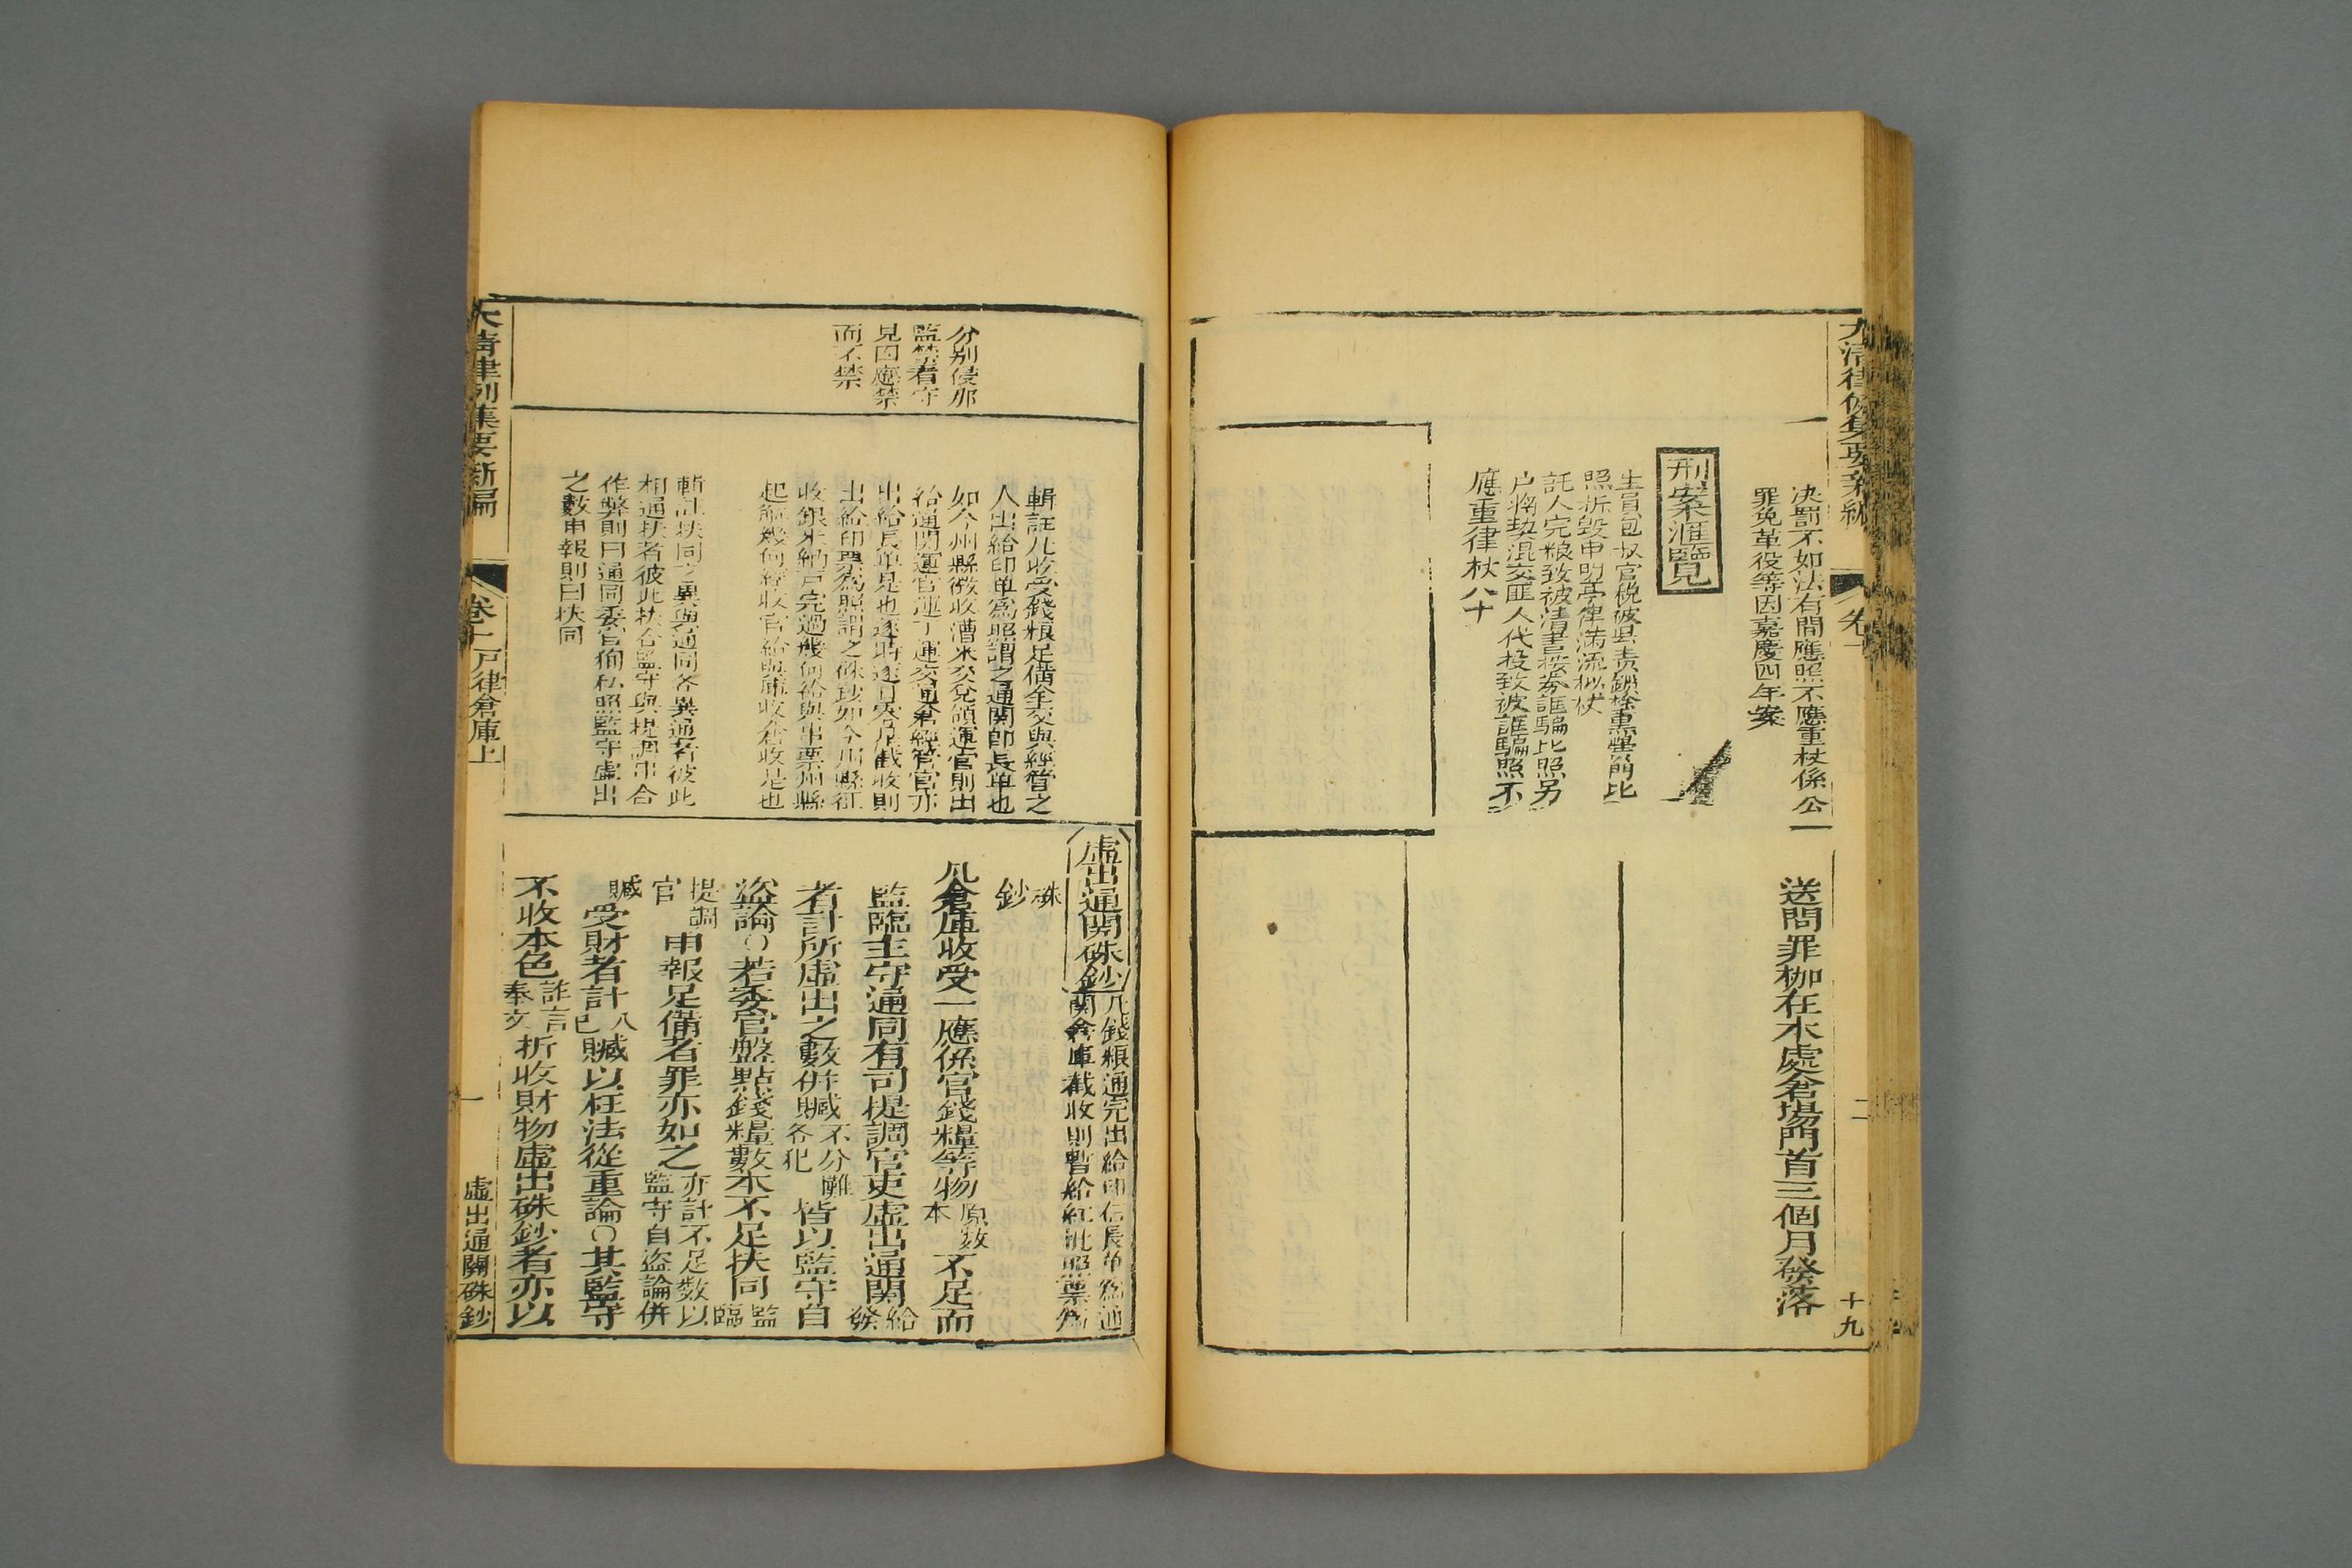 大清律例集要新編
卷十
二
十九
決罰不如法有間應照不應重杖係公
罪免革役等因嘉慶四年案
刑案滙覽
生員包收官税被縣責鎖捺熏瑩前比
照折毀申明亭律滿流擬仗
託人完粮致被清書按券誆騙比照另
户將契混交匪人代投致被誆騙照不
應重律杖八十
送問罪枷在本處倉場門首三個月發落
分别侵那
監禁看守
見因應禁
而不禁
輯註凡收受錢粮足備全交與經管之
人出給印單為照謂之通關即長單也
如今州縣徵收漕米交兌領運官則出
給通關運官運丁運交通倉經管官亦
出給長單是也逐時逐月零星截收則
出給印票為照謂之硃鈔如今州縣征
收銀米納戸完過幾何給與串票州縣
起解幾何經收官給與庫收倉收是也
輯註扶同之異與通同各異通者彼此
相通扶者彼此扶合監守與提調串合
作弊則曰通同委官徇私照監守虛出
之數申報則曰扶同
虛出通關硃鈔
凡錢粮通完出給印信長单為通
關倉庫截收則暫給紅批照票為
硃
鈔
凡倉庫收受一應係官錢糧等物原數本不足而
監臨主守通同有司提調官吏虛出通關給發
者計所虛出之數併贓不分攤各犯皆以監守自
盜論○若委官盤點錢糧數本不足扶同監臨
提調官申報足備者罪亦如之亦計不足數以監守自盜論併
贓受財者計入己贓以枉法從重論○其監守
不收本色詐言奉文折收財物虛出硃鈔者亦以
大清律例集要新編
卷十
戸律倉庫上
一
虛出通關硃鈔